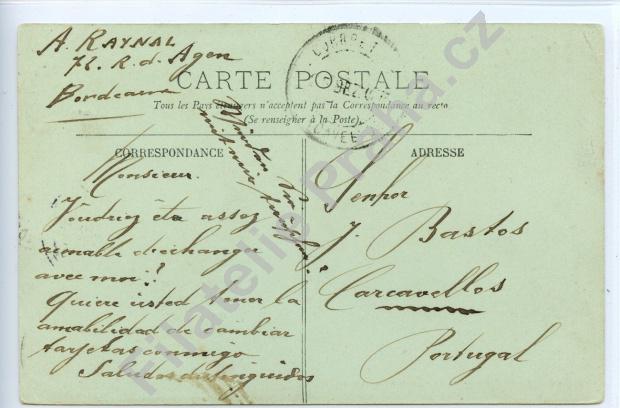 A. RAYNAL
72. R. d. Agen
Bordeaux
CARTE POSTALE
Tous les Pays étrangers n'acceptent pas la Correspondance au recto
(Se renseigner à la Poste)
CORRESPONDANCE
Monsieur.
Voudriez êtа assez
aimable d'echanger
avec moi?
Quiere usted tener la
amabilidad de cambiar
tarjetas conmigo
Saludos distinguidos
ADRESSE
Senhor
J. Bastos
Carcavellos
Portugal
Filatelie Praha.cz